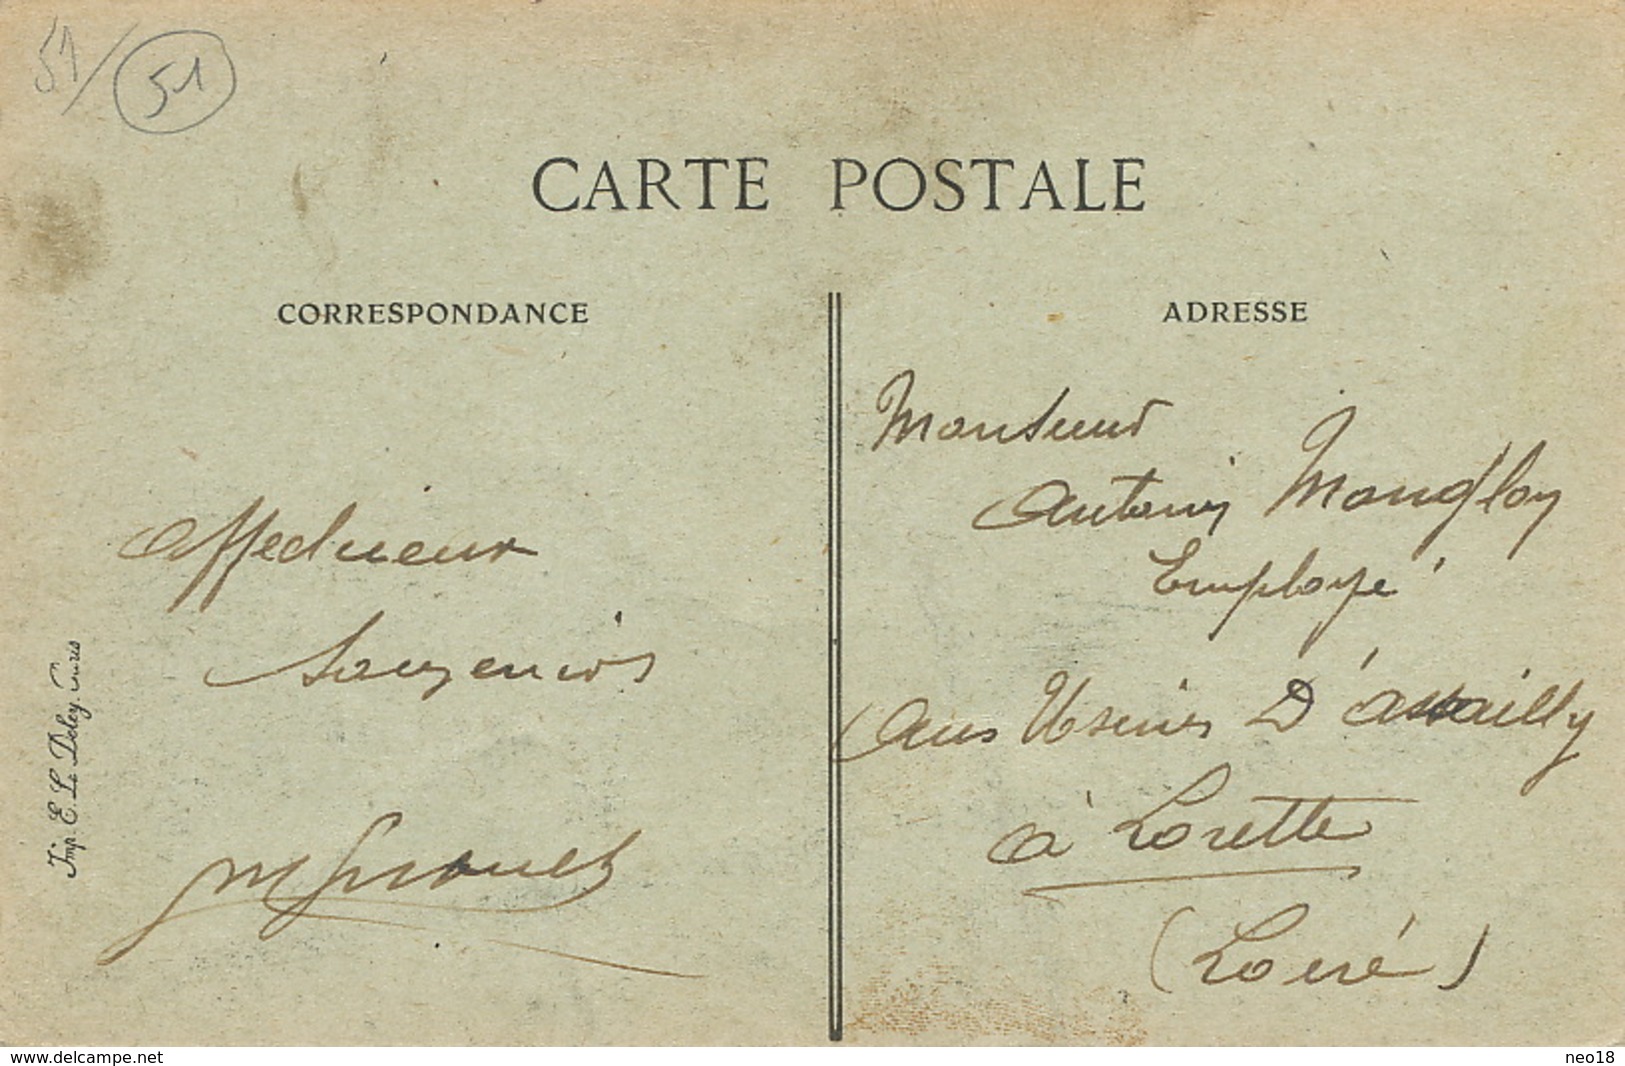 51/ 51
CARTE POSTALE
CORRESPONDANCE
ADRESSE
Affectueux
Souvenirs
Imp. E. Le Deley, Paris
Monsieur
Antonin Mongloy
Employé
Aux Usines D'assailly
à Lorette
(Loire)
www.delcampe.net
neo18